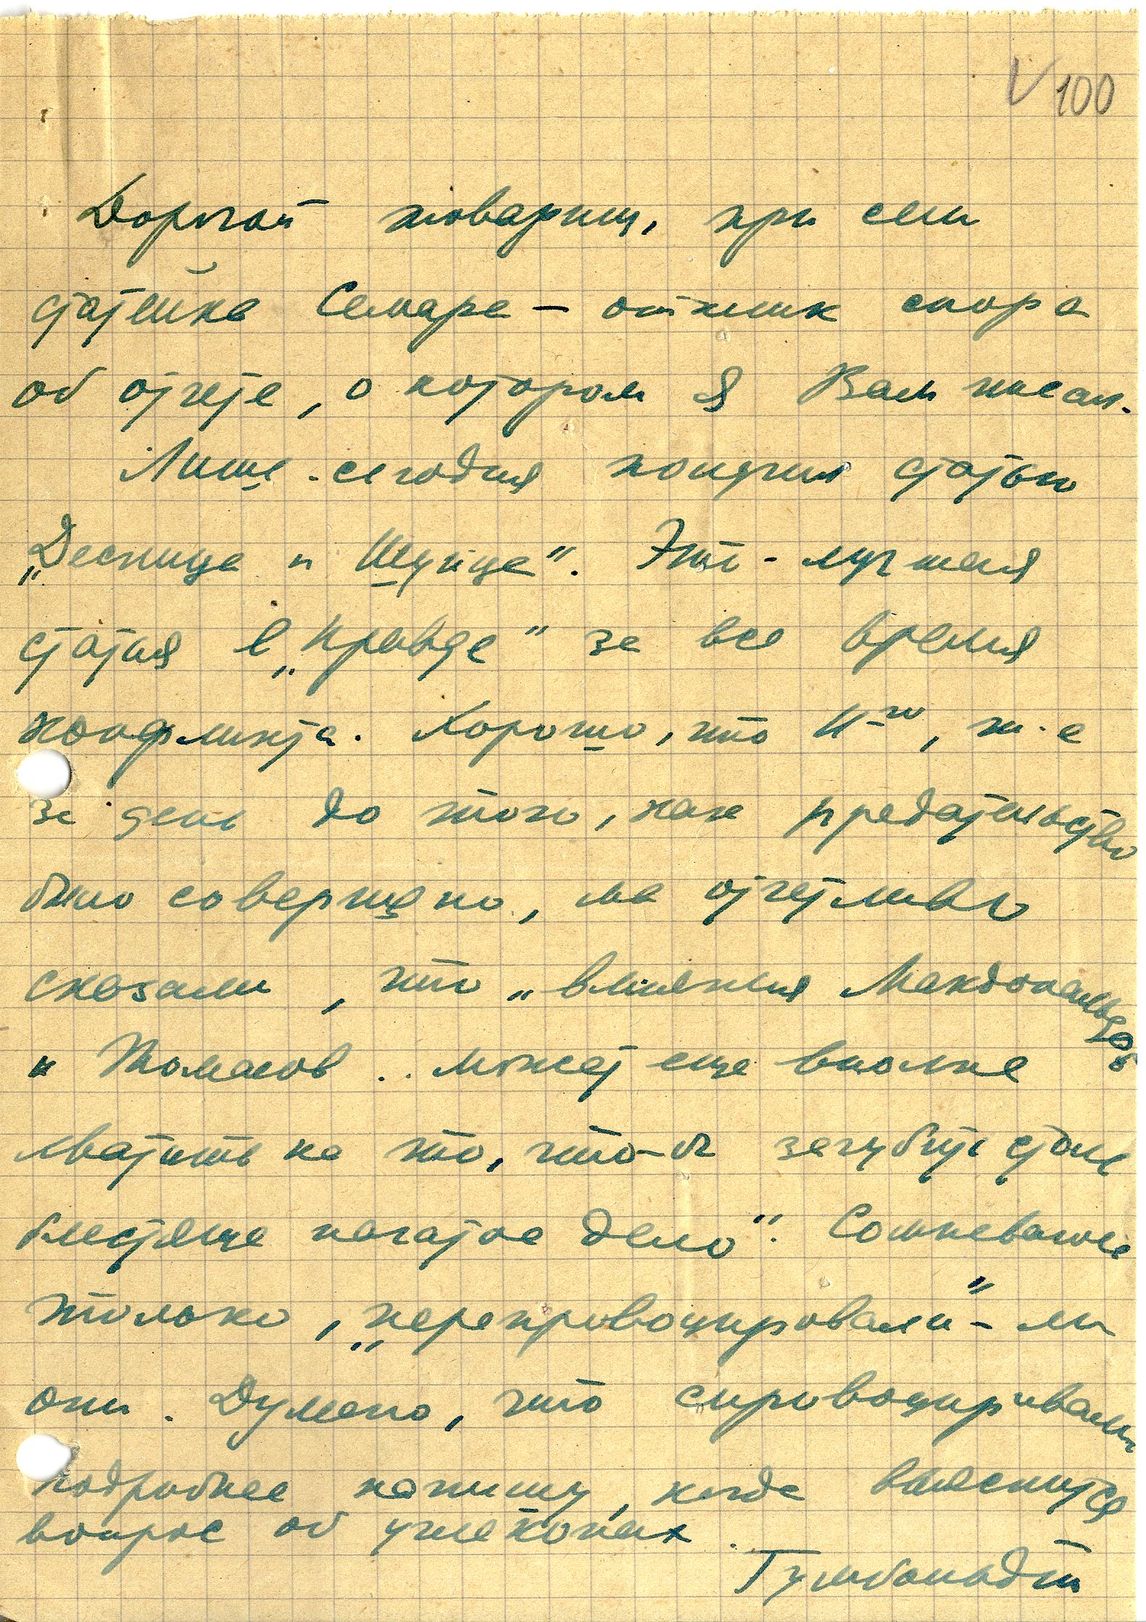 V 100
Дорогой товарищ, при сем
статейка Семара — отклик спора
об отчете, о котором я Вам писал.
Лише сегодня получил статью
„Десница и Шуйца“. Это - лучшая
статья в „Правде“ за все время
конфликта. Хорошо, что 11-го, т.е
за день до того, как предательство
было совершено, мы отчетливо
сказали, что „влияния Макдональдов
и Томасов .. может еще вполне
хватить на то, что-б загубить столь
блестяще начатое дело“. Сомневаюсь
только, „перепровоцировали“ - ли
они. Думаю, что спровоцировали
подробнее напишу, когда выяснится
вопрос об углекопах.
Гумбольдт